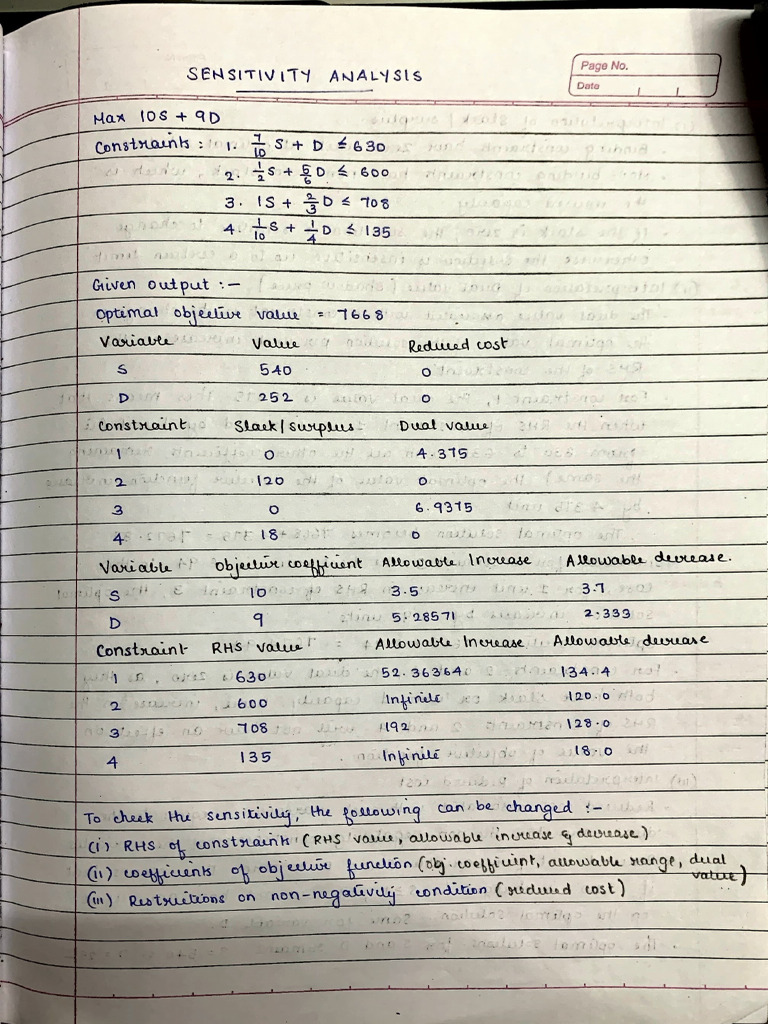 SENSITIVITY ANALYSIS
Page No.
Date
Max 10S + 9D
Constraints : 1. 7/10 S + D ≤ 630
2. 1/2 S + 5/6 D ≤ 600
3. 1S + 2/3 D ≤ 708
4. 1/10 S + 1/4 D ≤ 135
Given output :-
Optimal objective value = 7668
Variable Value Reduced cost
S 540 0
D 252 0
Constraint Slack/surplus Dual value
1 0 4.375
2 120 0
3 0 6.9375
4 18 0
Variable objective coefficient Allowable Increase Allowable decrease.
S 10 3.5 3.7
D 9 5.28571 2.333
Constraint RHS value Allowable Increase Allowable decrease
1 630 52.36364 134.4
2 600 Infinite 120.0
3 708 192 128.0
4 135 Infinite 18.0
To check the sensitivity, the following can be changed :-
(i) RHS of constraints (RHS value, allowable increase & decrease)
(ii) coefficients of objective function (obj. coefficient, allowable range, dual value)
(iii) Restrictions on non-negativity condition (reduced cost)